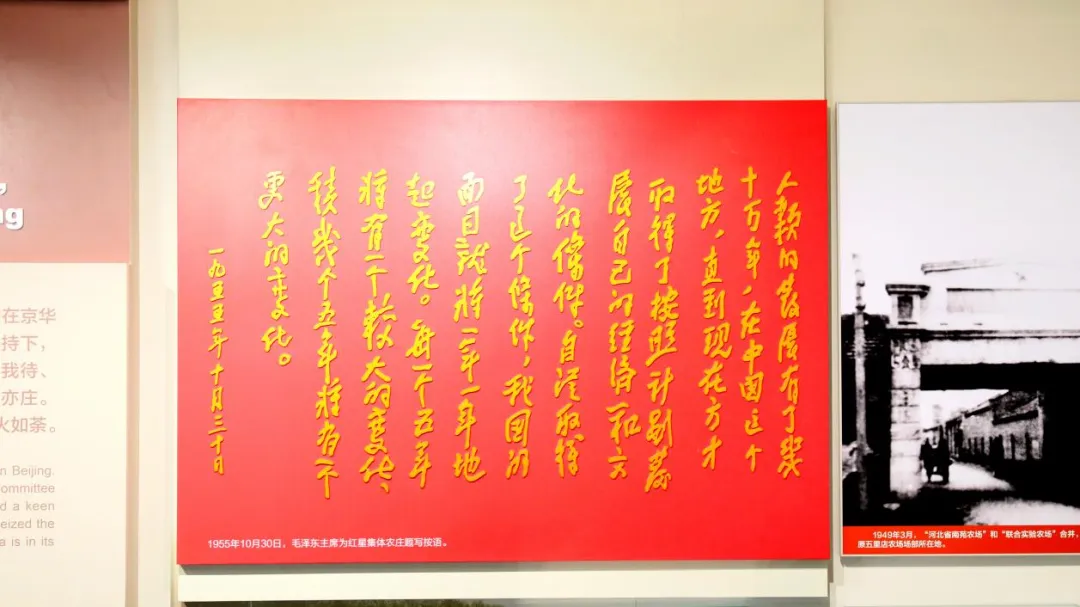 ng
在京华
持下，
我待、
亦庄。
火如荼。
n Beijing.
ommittee
d a keen
eized the
a is in its
人類的发展有了幾
十万年，在中国这个
地方，直到现在方才
取得了按照计划发
展自己的经济和文
化的條件。自從取得
了这个條件，我国的
面目就将一年一年地
起变化。每一个五年
将有一个較大的变化，
積幾个五年将有一个
更大的变化。
一九五五年十月三十日
1955年10月30日，毛泽东主席为红星集体农庄题写按语。
1949年3月，“河北省南苑农场”和“联合实验农场”合并，
原五里店农场场部所在地。